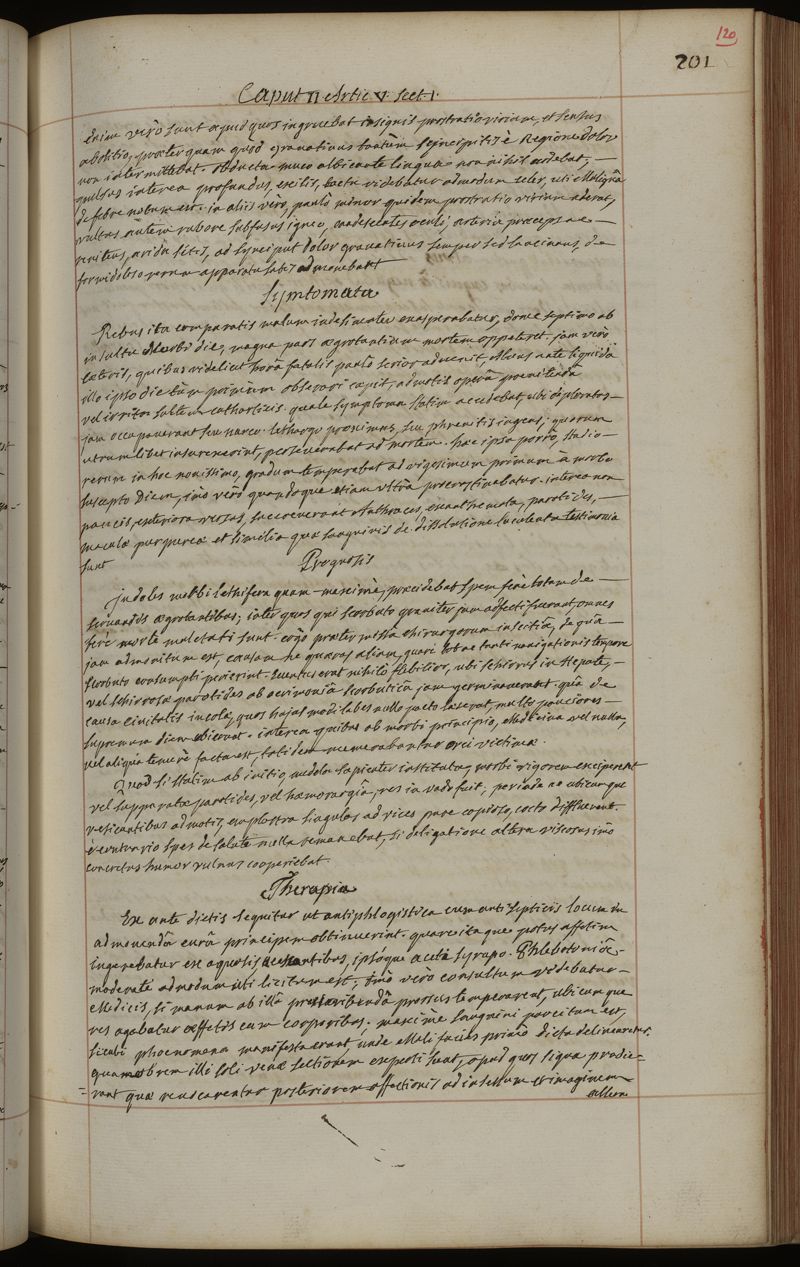 120
201
Caput II Artic V. Sect. I.
enim verò sunt apud quos ingruebat insignis prostratio virium, et sensus
abolitio, præterquam quod gravativus tantùm sejncipitis è Regione dolor
non intermittebat. obducta muco albicante lingua non nihil ardebat, —
pulsus interea profundus, exilis, tactu videbatur admodum celer, uti Maligna
de febre notum est. in aliis verò, paulò minor quidem prostratio virium aderat,
vultus autem rubore suffusus igneo, oculi, arteria præceps ac —
renitens, arida sitis, ad synciput dolor gravativus semper sed lancinans, de
formidoloso rerum apparatu satis admonebant
Symtomata
Rebus ita comparatis malum indesinenter exasperabatur, donec septimo ab
insultu Morbi die, magna pars ægrotantium mortem oppeteret. jam verò
cæteris, quibus videlicet hora fatalis paulò serior advenit, Alvus nate liquida
illo ipso die tùm primùm observari cæpit, admotis opera
vel irritæ saltem catharticis. quale symptoma statim accedebat, ubi deploratos —
jam occupaverant seu narco-lethargo proximus, seu phrenitis ingens; quorum
utrumlibet insurrexerint, perseverabat ad mortem. hæc ipsa porrò, stadio —
rerum in hoc novissimo, gradum temperabat ad vigesimum primum à morbo
suscepto Diem, imò verò quandoque etiam ultrà procrastinabatur. interea non
paucis, exteriora versus, succreverant Anthraces, exanthemata, parotides, —
maculæ purpureæ et similia quæ sanguinis de dissolutione luculenta testimonia
sunt
Prognosis
Indoles morbi lethifera quam-maximè, præcidebat spem ferè totam de —
servandis ægrotantibus; inter quos qui scorbuto graviter jam affecti fuerant, omnes
ferè morte mulctati sunt. ergò præter nostra chirurgorum inscitia, de qua —
jam admonitum est, causam ne quæras aliam, quare tot ac tanti navigationis tempore
scorbuto consumpti perierint. eventus erat nihilò flebilior, ubi schirrus in Hepate, —
vel schirrosæ parotides ab acrimonia scorbutica jam germinaverant. qua de
causa civitatis incolæ, quos hujusmodi labes nullo pacto læserat, multò pauciores —
supremum diem obierunt. interea quibus ab morbi principio, Medicina vel nulla,
vel aliqua temerè facta est, totidem memorabantur orci victimæ.
Quod si statim ab initio, medela sapienter instituta, morbi rigorem exciperent
vel suppuratæ parotides, vel hæmorragia, res in vado fuit; perinde ac ubicunque
vesicantibus admotis, emplastra singulas ad vices pure copioso, cocto diffluerent.
è contrario spes de salute nulla remanebat, si deligatione altera viscosus imò
concretus humor vulnus cooperiebat.
Therapia
Ex ante dictis sequitur ut antiphlogistica cum antisepticis locum in
admovenda cura principem obtinuerint. quare itaque potus affatim
ingerebatur ex aquosis, acescentibus, ipsóque aceti syrupo. Phlebotomiâ
moderatè admodum uti licitum est; Imò verò consultum videbatur —
Medicis, si manum ab illa præscribenda prorsus temperarent, ubicumque
res agebatur effætis cum corporibus; maximè sanguini parcitum est,
sicubi phœnomena manifesta erant unde Mali facies primò dicta delinearetur.
quamobrem illi soli venæ sectionem experti sunt, apud quos signa prodie=
= rant quæ revocarentur posteriorem affectionis ad insultum et imaginem —
allem